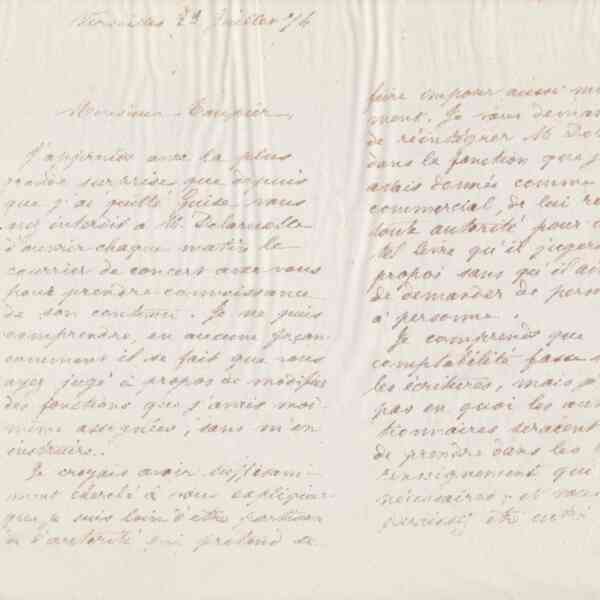 Versailles 29 Juillet 76
Monsieur
J'apprends avec la plus
grande surprise que depuis
que j'ai quitté Guise vous
avez interdit à M. Delaruelle
d'ouvrir chaque matin le
courrier de concert avec vous
pour prendre connaissance
de son contenu. Je ne puis
comprendre, en aucune façon
comment il se fait que vous
ayez jugé à propos de modifier
des fonctions que j'avais moi-
même assignées, sans m'en
instruire.
Je croyais avoir suffisam-
ment cherché à vous expliquer
que je suis loin d'être partisan
de l'autorité qui prétend se
faire imposer aussi
ment. Je vous
de réintégrer M.
dans la fonction que
avais donnée comme
commercial, de lui
toute autorité pour
tel livre qu'il
propos sans qu'il
de demander de
à personne.
Je comprends que
comptabilité fasse
les écritures, mais
pas en quoi les
de prendre dans les
renseignement qui
nécessaires; et
être